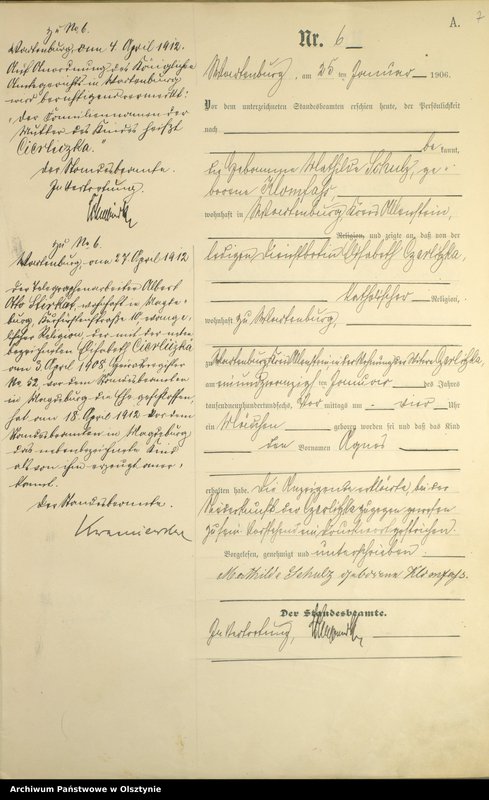 A.
7
Zu Nr. 6.
Wartenburg, am 4. April 1912.
Auf Anordnung des Königlichen
Amtsgerichts in Wartenburg
wird berichtigend vermerkt:
"Der Familienname der
Mutter des Kindes heißt
Cierliczka."
Der Standesbeamte.
In Vertretung.
Zu Nr. 6.
Wartenburg, am 27. April 1912
Der Telegraphenarbeiter Albert
Otto wohnhaft in Magde-
burg, evange-
lischer Religion, der mit der neben-
bezeichneten Elisabeth Cierliczka
am 3. April 1908
No 52. vor dem Standesbeamten
in Magdeburg die Ehe geschlossen,
hat am 18. April 1912 vor dem
Standesbeamten in Magdeburg
das nebenbezeichnete Kind
als von ihm erzeugt aner-
kannt.
Der Standesbeamte.
Nr. 6
Wartenburg, am 25 ten Januar 1906.
Vor dem unterzeichneten Standesbeamten erschien heute, der Persönlichkeit
nach
be kannt,
die Hebamme Mathilde Schulz, ge-
borene Klomfass
wohnhaft in Wartenburg, Kreis Allenstein,
Religion, und zeigte an, daß von der
ledigen Dienstbotin Elisabeth Czerliczka,
katholischer Religion,
wohnhaft zu Wartenburg,
zu Wartenburg Kreis Allenstein in der Wohnung des Vaters Czerliczka,
am neunzehnten Januar des Jahres
tausendneunhundertundsechs, Vor mittags um vier Uhr
ein Mädchen geboren worden sei und daß das Kind
den Vornamen Agnes
erhalten habe. Die Anzeigende erklärte, bei der
Niederkunft der Czerliczka zugegen gewesen
zu sein. Vorstehend ein Druckwort gestrichen.
Vorgelesen, genehmigt und unterschrieben.
Mathilde Schulz geborene Klomfass.
Der Standesbeamte.
In Vertretung,
Archiwum Państwowe w Olsztynie